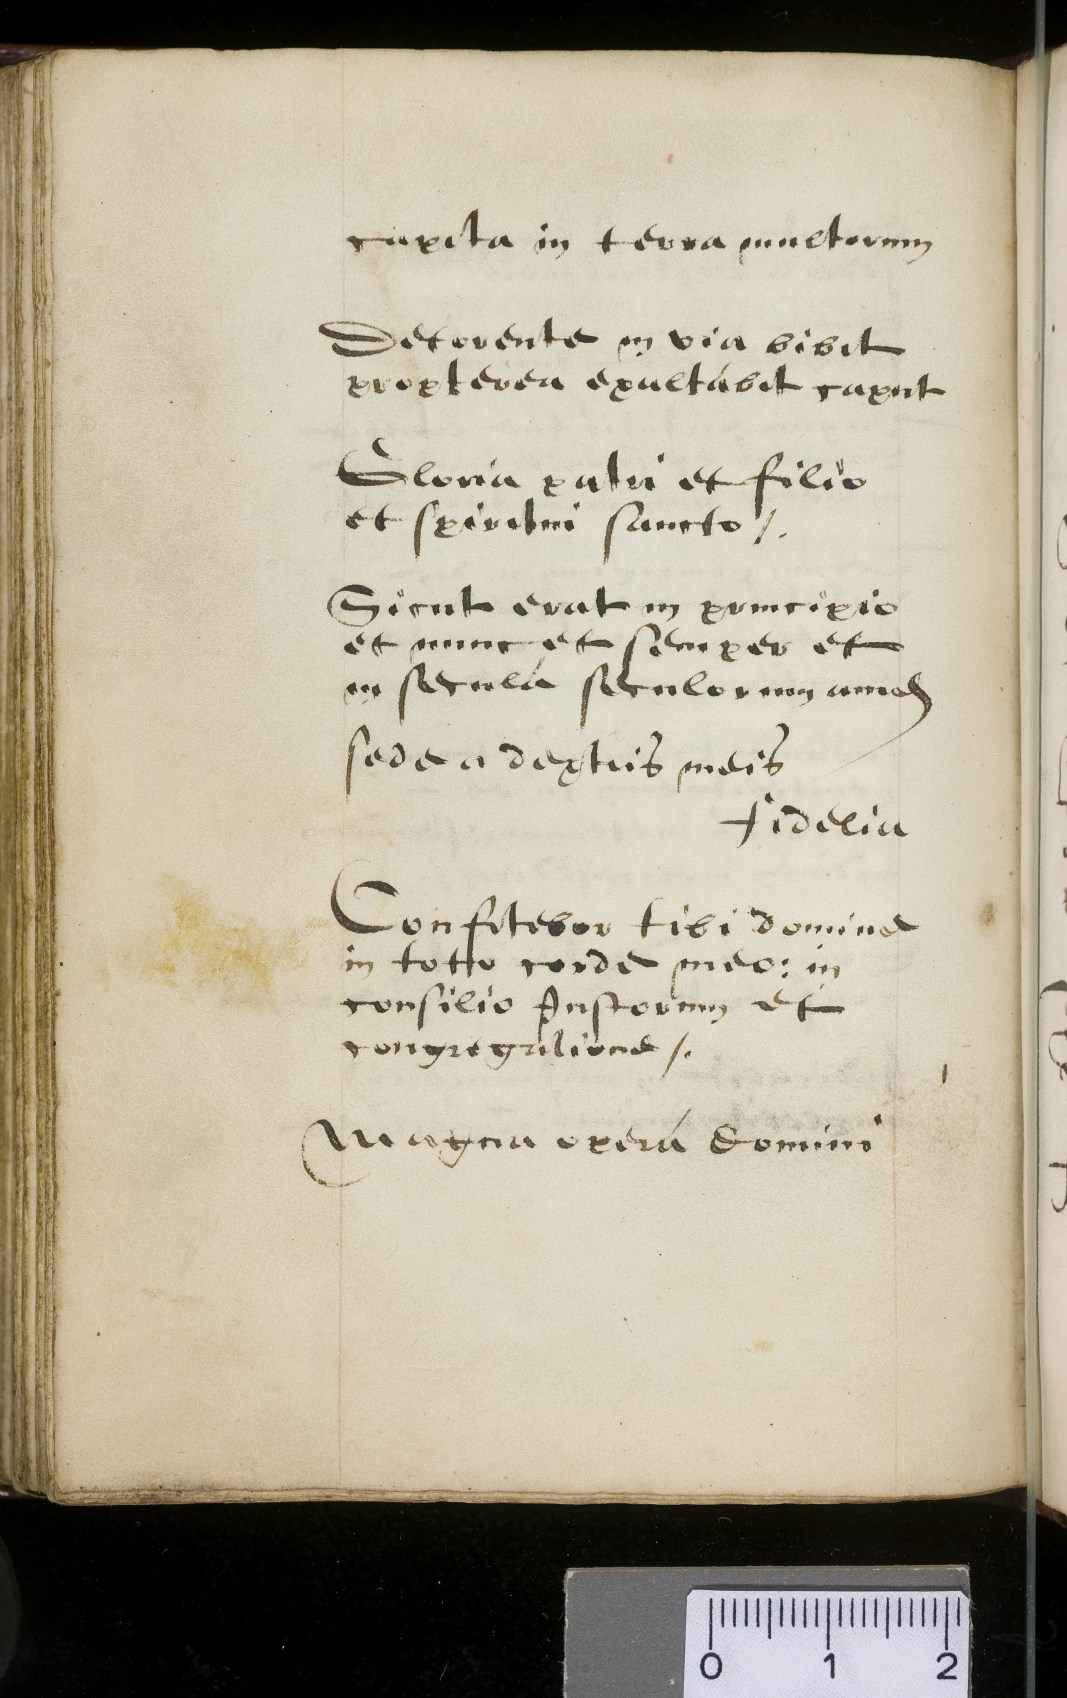 capita in terra multorum
Detorente in via bibit
propterea exaltábit caput
Gloria patri et filio
et spiritui sancto /.
Sicut erat in principio
et nunc et semper et
in seculá seculorum amen
sede a dextris meis
fidelia
Confitebor tibi domine
in toto corde meo: in
consilio Justorum et
congregatione /.
Magna operá domini
0 1 2